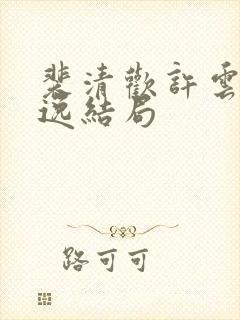 裴清歡許雲
逸結局
路可可